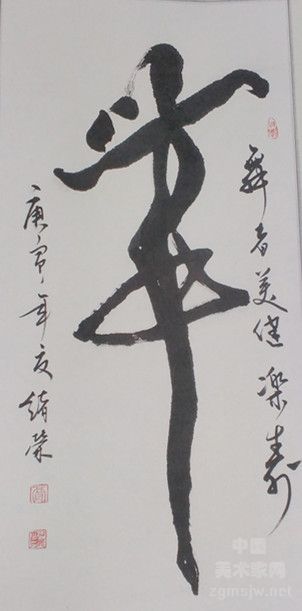 舞者美健樂寿
舞
庚寅年夏绪荣
中国
美术家网
zgmsjw.net